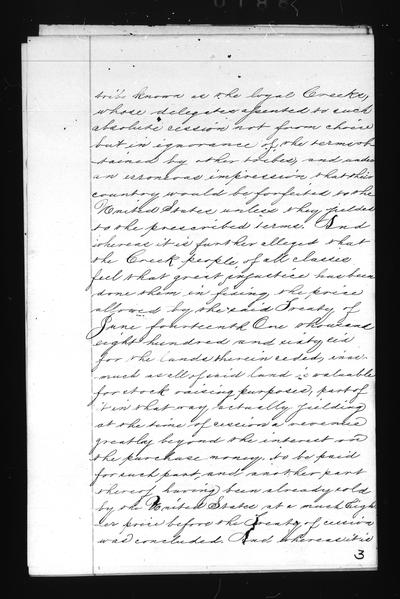 tribe known as the loyal Creeks,
whose delegates assented to such
absolute cession not from choice
but in ignorance of the terms ob-
tained by other tribes, and under
an erroneous impression that their
country would be forfeited to the
United States unless they yielded
to the prescribed terms. And
whereas it is further alleged that
the Creek people of all classes
feel that great injustice has been
done them in fixing the price
allowed by the said Treaty of
June fourteenth One thousand
eight hundred and sixty six
for the lands therein ceded, inas-
much as all of said land is valuable
for stock raising purposes, part of
it in that way actually yielding
at the time of cession a revenue
greatly beyond the interest on
the purchase money to be paid
for such part, and another part
thereof having been already sold
by the United States at a much high-
er price before the Treaty of cession
was concluded. And whereas it is
3